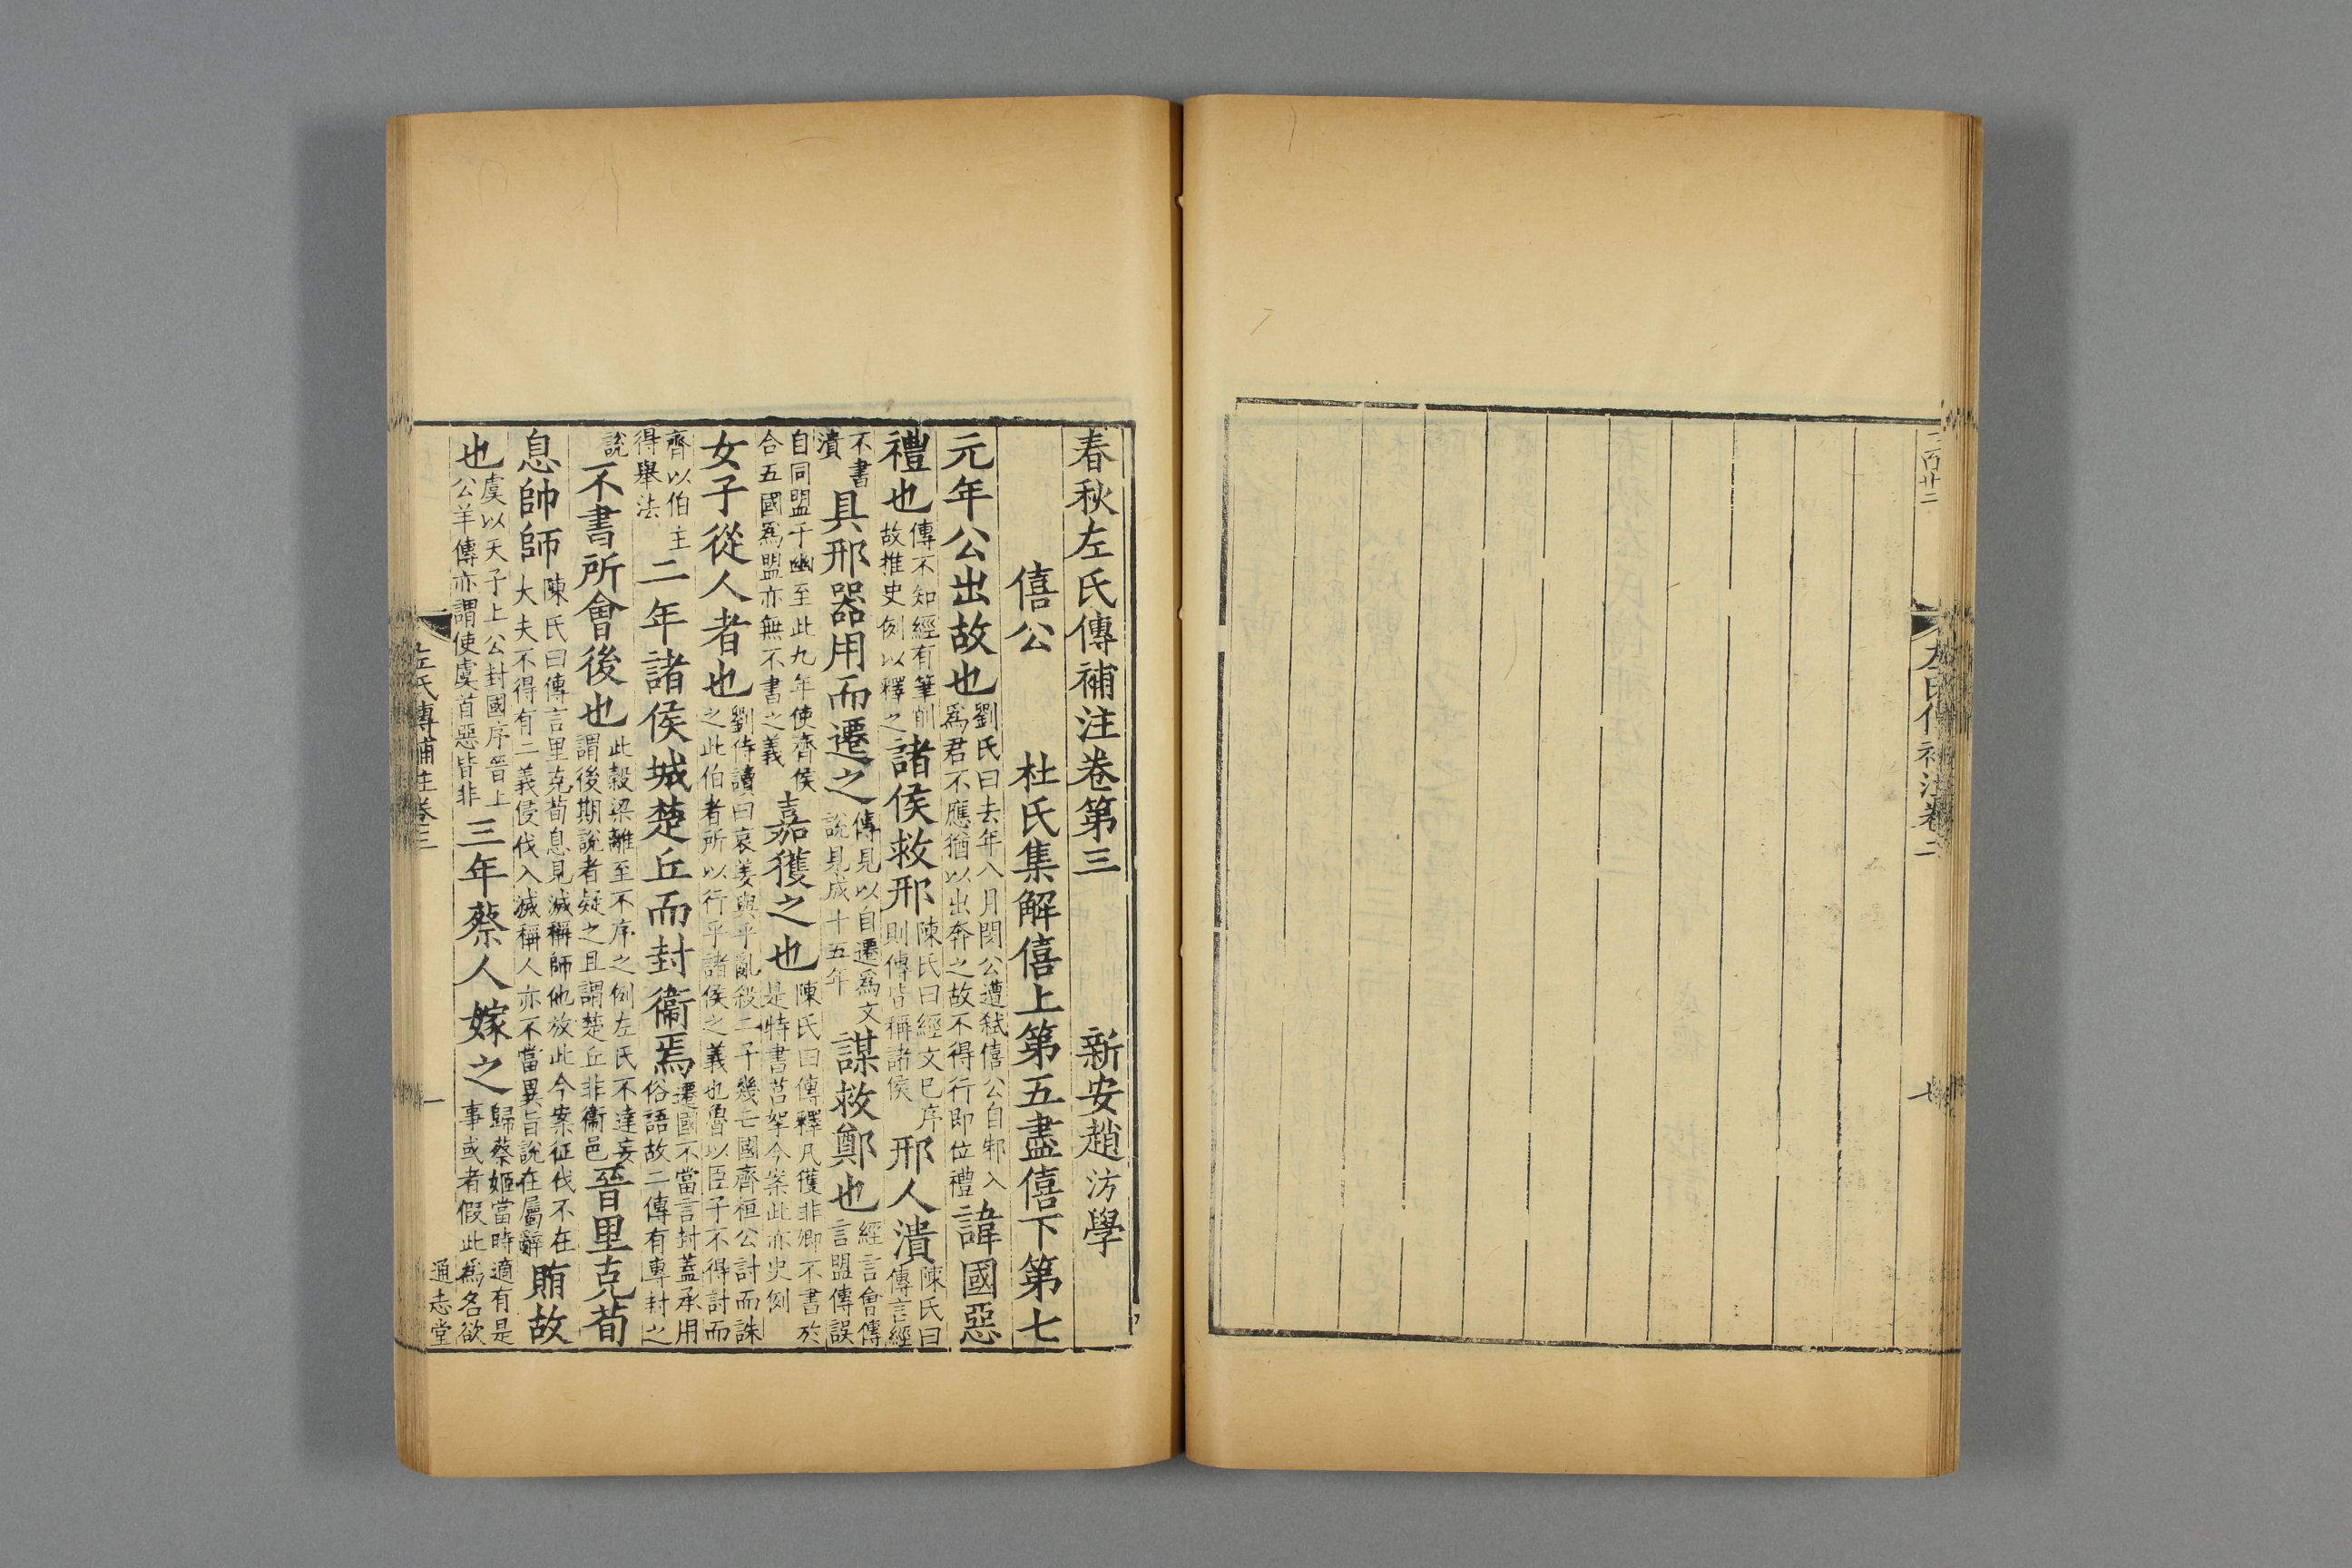 二百廿二
左氏傳補注卷二
七
春秋左氏傳補注卷第三 新安趙汸學
僖公 杜氏集解僖上第五盡僖下第七
元年公出故也 劉氏曰去年八月閔公遭弑僖公自邾入 爲君不應猶以出奔之故不得行即位禮 諱國惡
禮也 傳不知經有筆削 故推史例以釋之 諸侯救邢 陳氏曰經文已序 則傳皆稱諸侯 邢人潰 陳氏曰 傳言經
不書 潰 具邢器用而遷之 傳見以自遷爲文 說見成十五年 謀救鄭也 經言會傳 言盟傳誤
自同盟于幽至此九年使齊侯 合五國爲盟亦無不書之義 嘉獲之也 陳氏曰傳釋凡獲非卿不書於 是特書莒挐今案此亦史例
女子從人者也 劉侍讀曰哀姜與乎亂殺二子幾亡國齊桓公討而誅 之此伯者所以行乎諸侯之義也魯以臣子不得討而
齊以伯主 得舉法 二年諸侯城楚丘而封衞焉 遷國不當言封蓋承用 俗語故二傳有專封之
說 不書所會後也 此穀梁離至不序之例左氏不達妄 謂後期說者疑之且謂楚丘非衞邑 晉里克荀
息帥師 陳氏曰傳言里克荀息見滅稱師他放此今案征伐不在 大夫不得有二義侵伐入滅稱人亦不當異旨說在屬辭 賄故
也 虞以天子上公封國序晉上 公羊傳亦謂使虞首惡皆非 三年蔡人嫁之 歸蔡姬當時適有是 事或者假此爲名欲
左氏傳補注卷三 一 通志堂